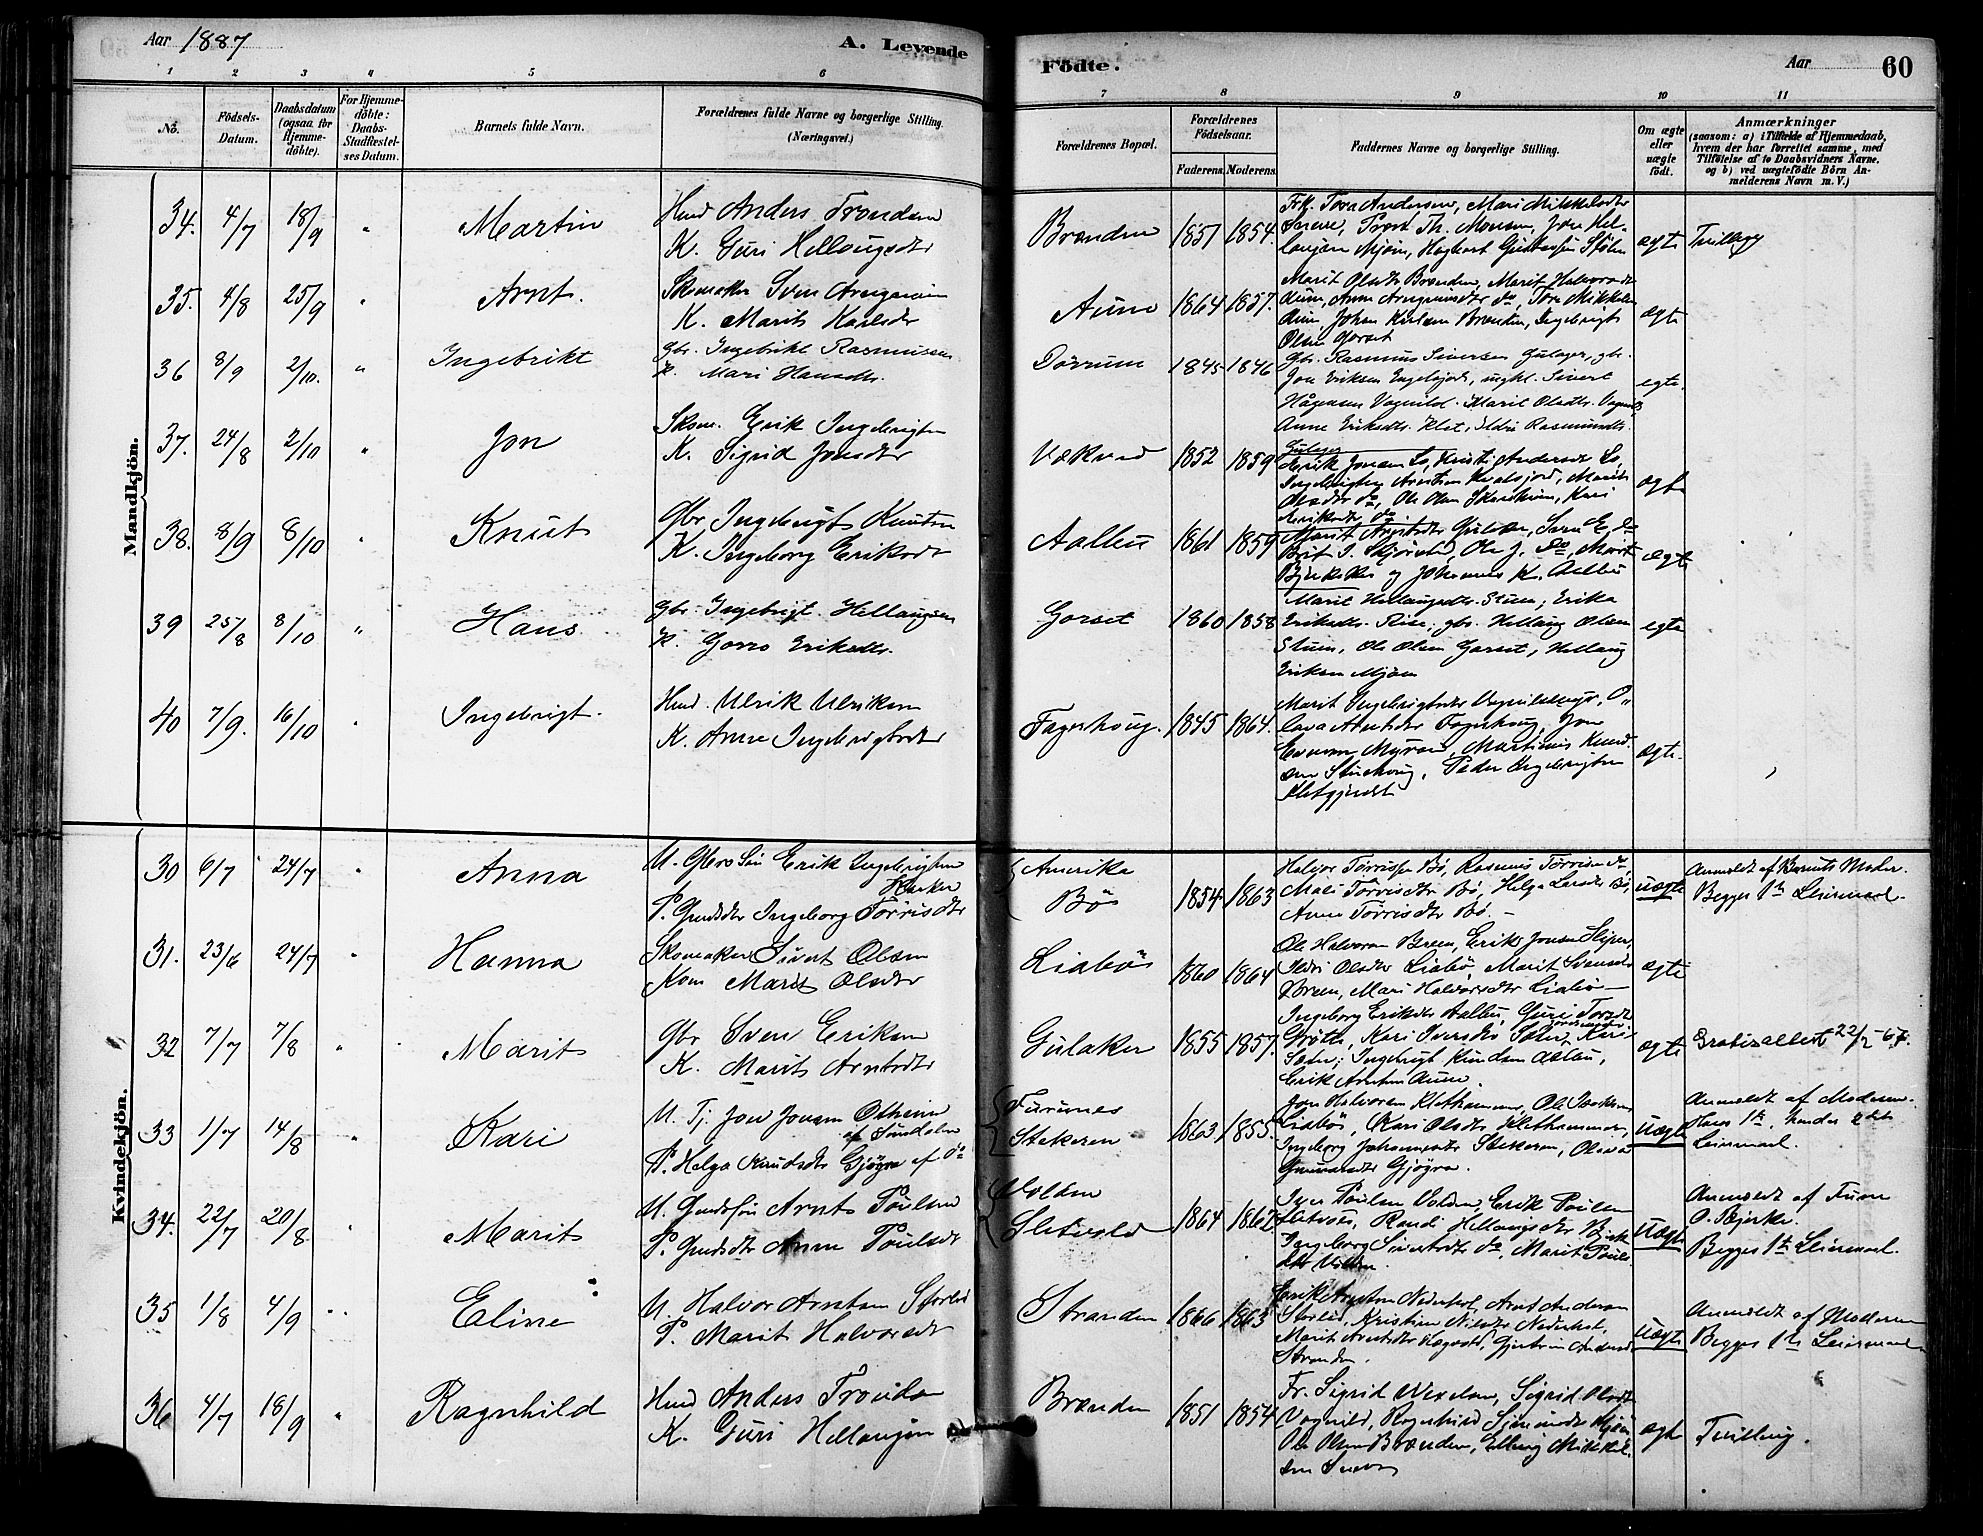 Aar 1887
A. Levende
Födte.
Aar
60
1 2 3 4 5 6 7 8 9 10 11
No.
Födsels-
Datum.
Daabsdatum
(ogsaa for
Hjemme-
døbte).
For Hjemme-
döbte:
Daabs-
Stadfæstel-
ses Datum.
Barnets fulde Navn.
Forældrenes fulde Navne og borgerlige Stilling.
(Næringsvei.)
Forældrenes Bopæl.
Forældrenes
Födselsaar.
Faderens. Moderens.
Faddernes Navne og borgerlige Stilling.
Om ægte
eller
uægte
födt.
Anmærkninger
(saasom: a) i Tilfælde af Hjemmedaab,
hvem der har forrettet samme, med
Tilföielse af to Daabsvidners Navne.
og b) ved uægtefödte Börn An-
melderens Navn m. V.)
Mandkjön.
34. 4/7 18/9 " Martin
Husd Anders Trondsen
K. Guri Hellaugsdtr
Brænden 1851 1854.
Frk. Tora Andersen, Mari Mikkelsdtr
Sneve, Provst Th. Monsen, Jon Hel-
laugsen Mjøen,
ægte Tvilling
35. 4/8 25/9 " Arnt.
Skomaker Sven Arngrimsen
K. Marit Karlsdtr
Aune 1864 1857.
Marit Olsdtr Brænden, Marit Halvorsdtr
Aune, Anne Arngrimsdtr do, Tore Mikkelsen
Aune, Johan Karlsen Brænden, Ingebrigt
Olsen Gorset
ægte
36 8/9 2/10. " Ingebrikt
Gbr. Ingebrikt Rasmussen
K. Mari Hansdtr.
Dørrum 1845 1846
Gbr. Rasmus Sivertsen Gulager, gbr.
Jon Eriksen Engelsjord, ungk. Sivert
Håg​ensen Vognild. Marit Olsdtr. Vognild,
Anne Eriksdtr. Klet, Eldri Rasmusdtr.
Gulager
egte.
37. 24/8 2/10 " Jon
Skom. Erik Ingebrigtsen
K. Sigrid Jonsdtr
Vekved 1852 1859
Henrik Jonsen Lo, Kristi Andersdtr Lo,
Ingebrigt Arntsen, Marit
Olsdtr do, Ole Olsen, Kari
Eriksdtr do.
ægte
38. 8/9 8/10 " Knut
Gbr Ingebrigt Knutsen
K. Ingeborg Eriksdt
Aalbu 1861 1859
Marit Gulaker, Sven E. do
Brit J. Skjørstad, Ole J. do, Marit
og Johannes K. Aalbu
ægte
39 25/8 8/10 " Hans
Gbr. Ingebrigt Hellaugsen
K. Goro Eriksdtr.
Gorset 1860 1858
Marit Hellaugsdtr. Stuen, Erika
Eriksdtr. Rise; gbr. Hellaug Olsen
Stuen, Ole Olsen Gorset, Hellaug
Eriksen Mjøen
egte
40 7/9. 16/10 " Ingebrigt.
Husd. Ulrik Ulriksen
K. Anne Ingebrigtsdtr
Fagerhoug. 1845 1864.
Marit Ingebrigtsdtr Vognildsaug, O-
lava Arntsdtr Fagerhoug, Jon
Evensen Myran, Martinus Knud-
sen Stuehoug, Peder Ingebrigtsen
Kletgjerdet
ægte.
Kvindekjön.
30 6/7 24/7 " Anna
U. Gbrs Søn Erik Ingebrigtsen
P. Gmdsdtr Ingeborg Törrisdtr
Amerika
Bös 1854 1863
Halvor Törrissen Bö, Rasmus Törrissen do,
Mali Törrisdtr Bö, Helga Larsdtr Bö,
Anne Törrisdtr Bö. –
uægte
Anmeldt af Barnets Moder.
Begges 1te Leiermaal.
31. 23/6 24/7 " Hanna
Skomaker Sivert Olsen
Kone Marit Olsdtr
Liabös 1860 1864
Ole Halvorsen Breen, Erik Jonsen Sliper,
Ildri Olsdtr Liabö, Marit Svensdtr
Breen, Mari Halvorsdtr Liabö –
ægte
32 7/7 7/8 " Marit
Gbr Sven Eriksen
K. Marit Arntsdtr
Gulaker 1855 1857.
Ingeborg Eriksdtr Aalbu, Guri Toresdt
Grötte, Kari Iversdtr Sæter, Kari
Sæter; Ingebrigt Knudsen Aalbu,
Erik Arntsen Aune.
ægte Gratisattest 22/2-67.
33 1/7 14/8 " Kari
U. Tj. Jon Jonsen Otheim
af Sundalen
P. Helga Knudsdtr Gjøgra af do
Furunes
Stekeren 1863 1855.
Jon Halvorsen Klethammer, Ole Isaksen
Liabös, Kari Olsdtr Klethammer,
Ingeborg Johannesdtr Stekeren, Olava
Gunnarsdtr Gjøgra.
Uægte
Anmeldt af Moderen.
Hans 1te, hendes 2det
Leiermaal.
34. 22/7 20/8 " Marit
U. Gmds Søn Arnt Poulsen
P. Gmdsdtr Anne Poulsdt
Volden
Sletvold 1864 1862.
Iver Poulsen Volden, Erik Poulsen
Sletvold, Randi Hellaugsdtr Bjerke
Ingeborg Sivertsdtr do, Marit Pouls-
dtr Volden.
Uægte
Anmeldt af
O. Bjerke.
Begges 1te Leiermaal.
35 1/8 4/9 " Eline
U. Halvor Arntsen Storlid
P. Marit Halvorsdt
Stranden 1866 1863
Erik Arntsen Nederhol, Arnt Andersen
Storlid, Kristine Nilsdtr Nederhol,
Marit Arntsdtr, Gjertrud Andersdt
Stranden.
Uægte
Anmeldt af Moderen
Begges 1te Leiermaal
36 4/7 18/9 " Ragnhild
Husd Anders Trondsen
K. Guri Hellaugsen
Brænden 1851 1854
Fr. Sigrid Wexelsen, Sigrid Olsdtr
Vognild, Ragnhild Sivertsdtr Mjøen
Ole Olsen Brænden, Elling Mikkel-
sen Sneve
ægte Tvilling.